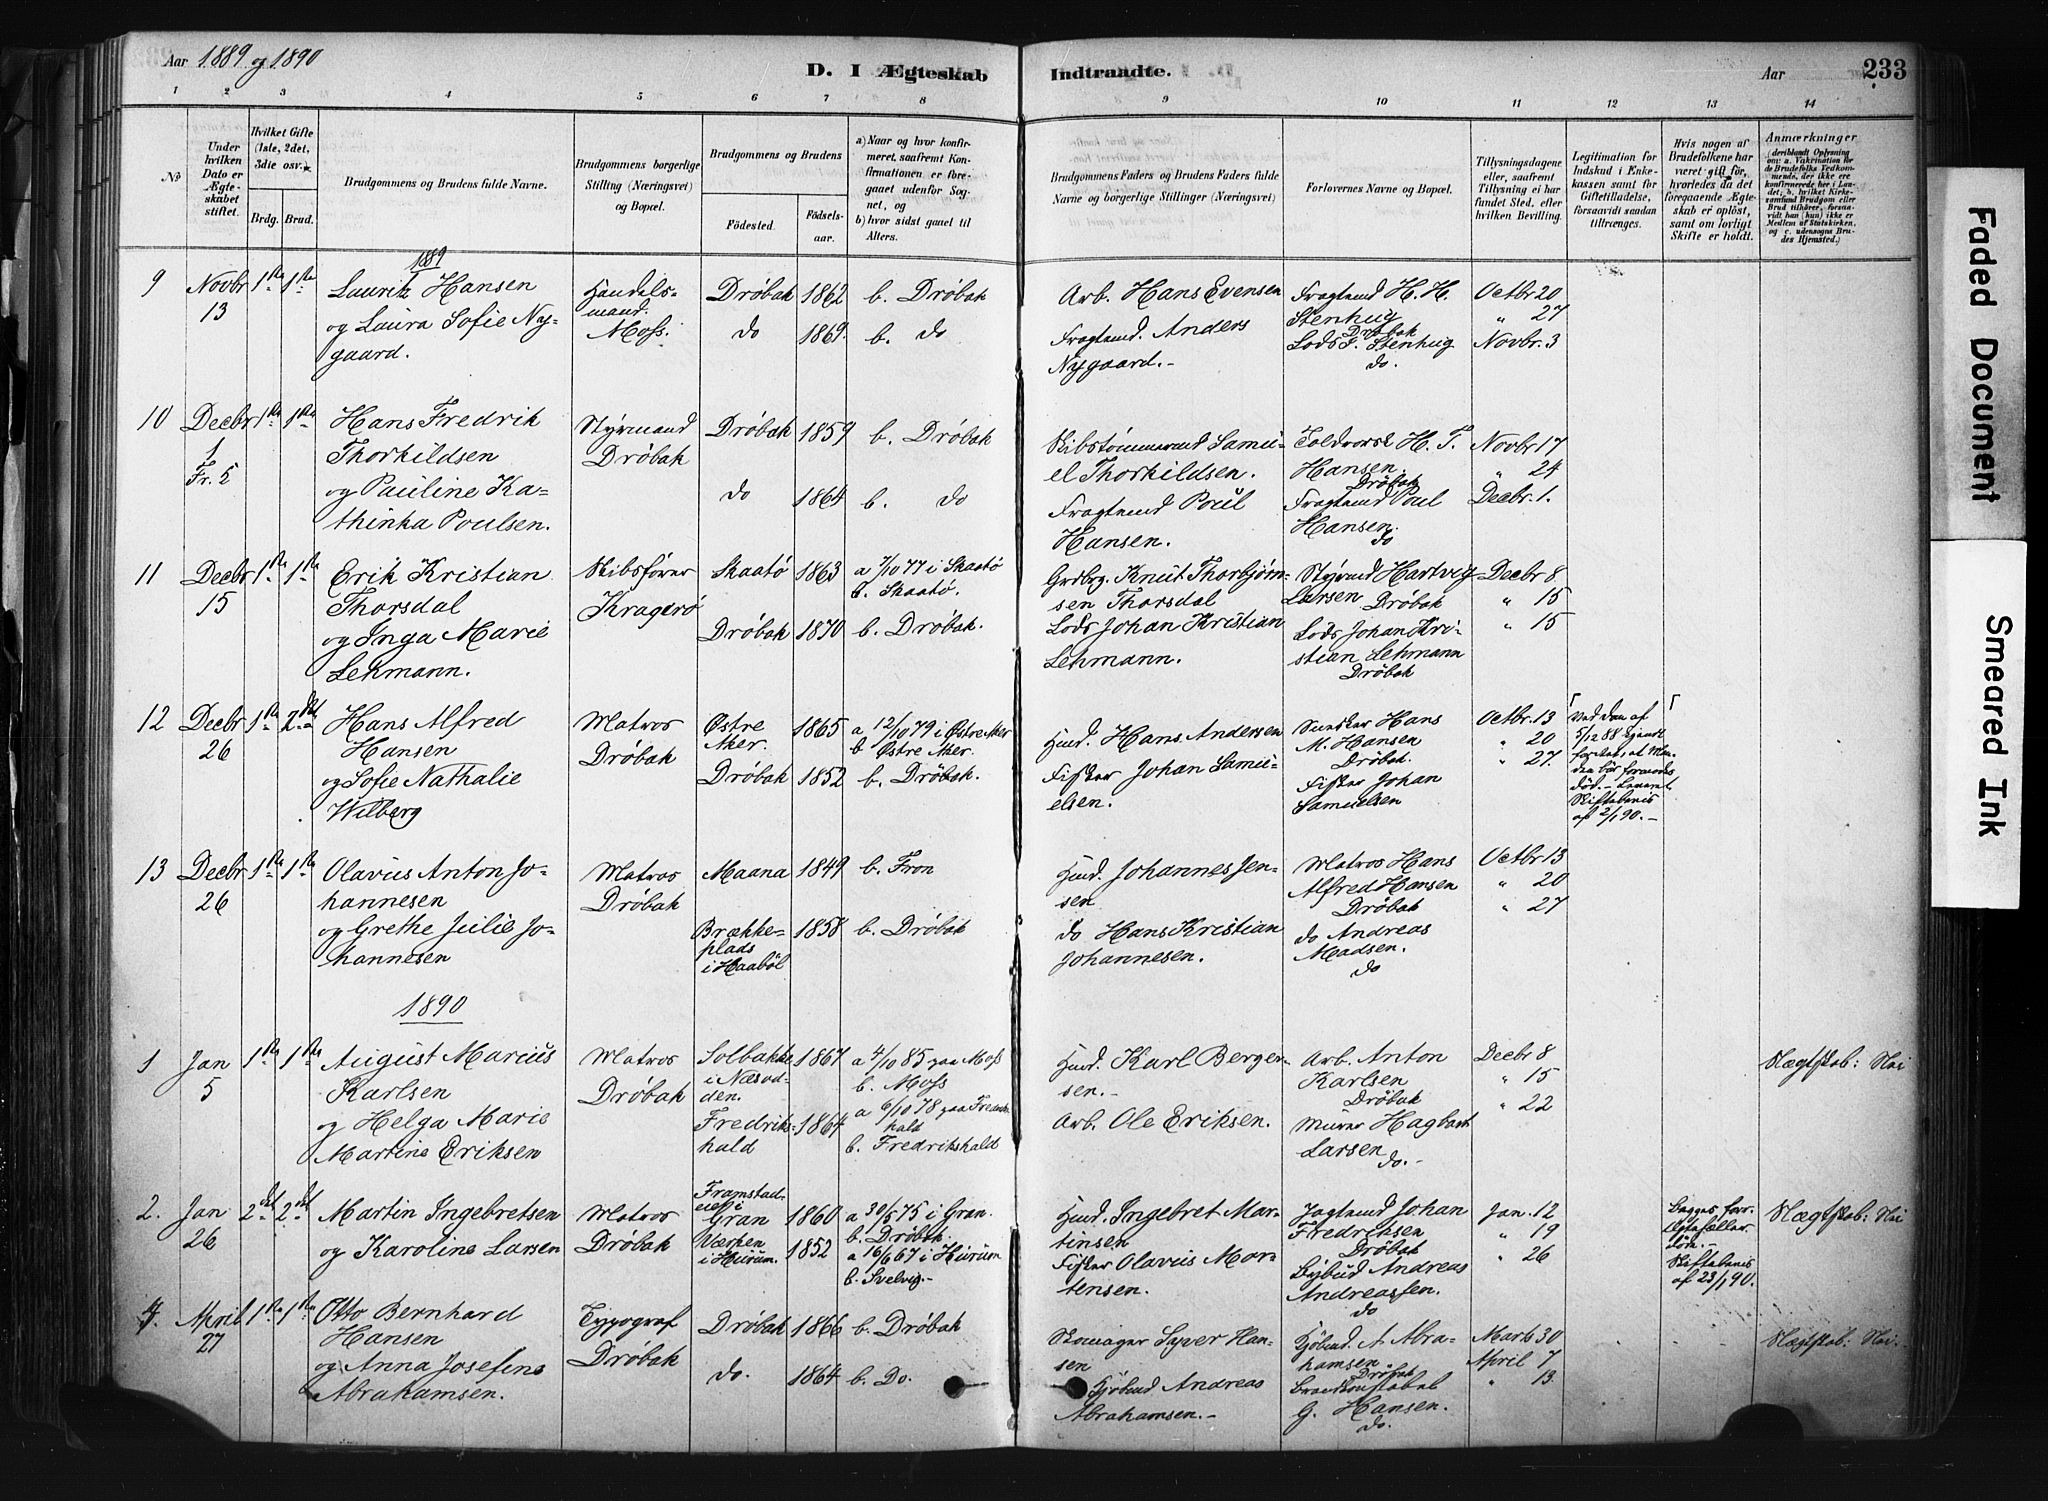 Aar 1889 og 1890
D. I Ægteskab Indtraadte.
Aar 233
1 2 3 4 5 6 7 8 9 10 11 12 13 14
No
Under hvilken Dato er Ægteskabet stiftet.
Hvilket Gifte (1ste, 2det, 3die osv.)
Brdg. Brud.
Brudgommens og Brudens fulde Navne.
Brudgommens borgerlige Stilling (Næringsvei) og Bopæl.
Brudgommens og Brudens
Födested. Födselsaar.
a) Naar og hvor konfirmeret, saafremt Konfirmationen er foregaaet udenfor Sognet, og
b) hvor sidst gaaet til Alters.
Brudgommens Faders og Brudens Faders fulde Navne og borgerlige Stillinger (Næringsvei)
Forlovernes Navne og Bopæl.
Tillysningsdagene eller, saafremt Tillysning ei har fundet Sted, efter hvilken Bevilling.
Legitimation for Indskud i Enkekassen samt for Giftetilladelse, forsaavidt saadan tiltrænges.
Hvis nogen af Brudefolkene har været gift før, hvorledes da det foregaaende Ægteskab er oplöst, samt om lovligt Skifte er holdt.
Anmærkninger
(deriblandt Oplysning om: a. Vakcination for de Brudefolks Vedkommende, der ikke ere konfirmerede her i Landet; b. hvilket Kirkesamfund Brudgom eller Brud tilhører, forsaavidt han (hun) ikke er Medlem af Statskirken, og c. udensogns Brudes Hjemsted.)
1889
9 Novbr 13 1ste 1ste
Lauritz Hansen
og Laura Sofie Nygaard.
Handelsmand. Moss.
Dröbak 1862 b. Dröbak
do 1869. b. do
Arb. Hans Evensen
Fragtmd. Anders Nygaard.-
Fragtmd H. H. Stenhug Dröbak
Lods F. Stenhug do.
Octbr 20
" 27
Novbr. 3
10 Decbr 1 Fr. 5 1ste 1ste
Hans Fredrik Thorkildsen
og Pauline Kathinka Poulsen.
Styrmand Dröbak
Dröbak 1859 b. Dröbak
do 1864 b. do
Skibstømmermd Samuel Thorkildsen.
Fragtmd Poul Hansen.
Toldvorsk H. T. Hansen. Dröbak
Fragtmd Poul Hansen. do
Novbr 17
" 24
Decbr. 1.
11 Decbr 15 1ste 1ste
Erik Kristian Thorsdal
og Inga Marie Lehmann.
Skibsfører Kragerö
Skaatö 1863 a 7/10 77 i Skaatö
b. Skaatö.
Dröbak 1870 b. Dröbak.
Grdbrg. Knut Thorbjørnsen Thorsdal
Lods Johan Kristian Lehmann.
Styrmd Hartvig Larsen Dröbak
Lods Johan Kristian Lehmann Dröbak
Decbr 8
" 15
" 15
12 Decbr 26 1ste 2det
Hans Alfred Hansen
og Sofie Nathalie Wilberg
Matros Dröbak
Østre Aker. 1865 a 12/10 79 i Østre Aker
b Østre Aker.
Dröbak 1852 b. Dröbak.
Hmd. Hans Andersen
Fisker Johan Samuelsen.
Hans M. Hansen Dröbak.
Fisker Johan Samuelsen
Octbr. 13
" 20
" 27.
Ved Dom af 5/12 88 at Manden bør formodes död. - Leveret Skiftebevis af 2/1 90.-
13 Decbr 26 1ste 1ste
Olavus Anton Johannesen
og Grethe Julie Johannesen
Matros Dröbak
Maana 1849 b. Fron
Brækkeplads i Haaböl 1858 b. Dröbak
Hmd. Johannes Jensen
do Hans Kristian Johannesen.
Matros Hans Alfred Hansen Dröbak
do Andreas Madsen. do
Octbr 13
" 20
" 27
1890
1 Jan 5 1ste 1ste
August Marius Karlsen
og Helga Marie Martine Eriksen
Matros Dröbak
Solbakke i Næsodden. 1867 a 4/10 85 paa Moss
b. Moss
Fredrikshald 1864 a 6/10 78 paa Fredrikshald
b. Fredrikshald
Hmd. Karl Bergersen.-
Arb. Ole Eriksen.
Arb. Anton Karlsen Dröbak
Murer Hagbart Larsen do.-
Decbr 8
" 15
" 22
Slægtskab: Nei
2. Jan 26 2det 2det
Martin Ingebretsen
og Karoline Larsen
Matros Dröbak
Framstadeie i Gran 1860 a 30/5 75 i Gran.
b. Dröbak.
Værpen i Hurum. 1852 a 16/6 67 i Hurum
b. Svelvig.-
Hmd. Ingebret Martinsen
Fisker Olavus Mortensen.
Jagtmd Johan Fredriksen Dröbak
Bybud Andreas Andreassen. do
Jan. 12
" 19
" 26
Begges forr. Ægtefæller döde.-
Skiftebevis af 23/1 90.
Slægtskab: Nei
4. April 27 1ste 1ste
Otto Bernhard Hansen
og Anna Josefine Abrahamsen.
Typograf Dröbak
Dröbak 1866 b. Dröbak
do. 1864 b. Do.
Skomager Syver Hansen
Kjöbmd Andreas Abrahamsen.-
Kjöbmd. A Abrahamsen. Dröbak
Brandkonstabel G. Hansen. do.
Marts 30
April 7
" 13.
Slægtskab: Nei.
Faded Document
Smeared Ink